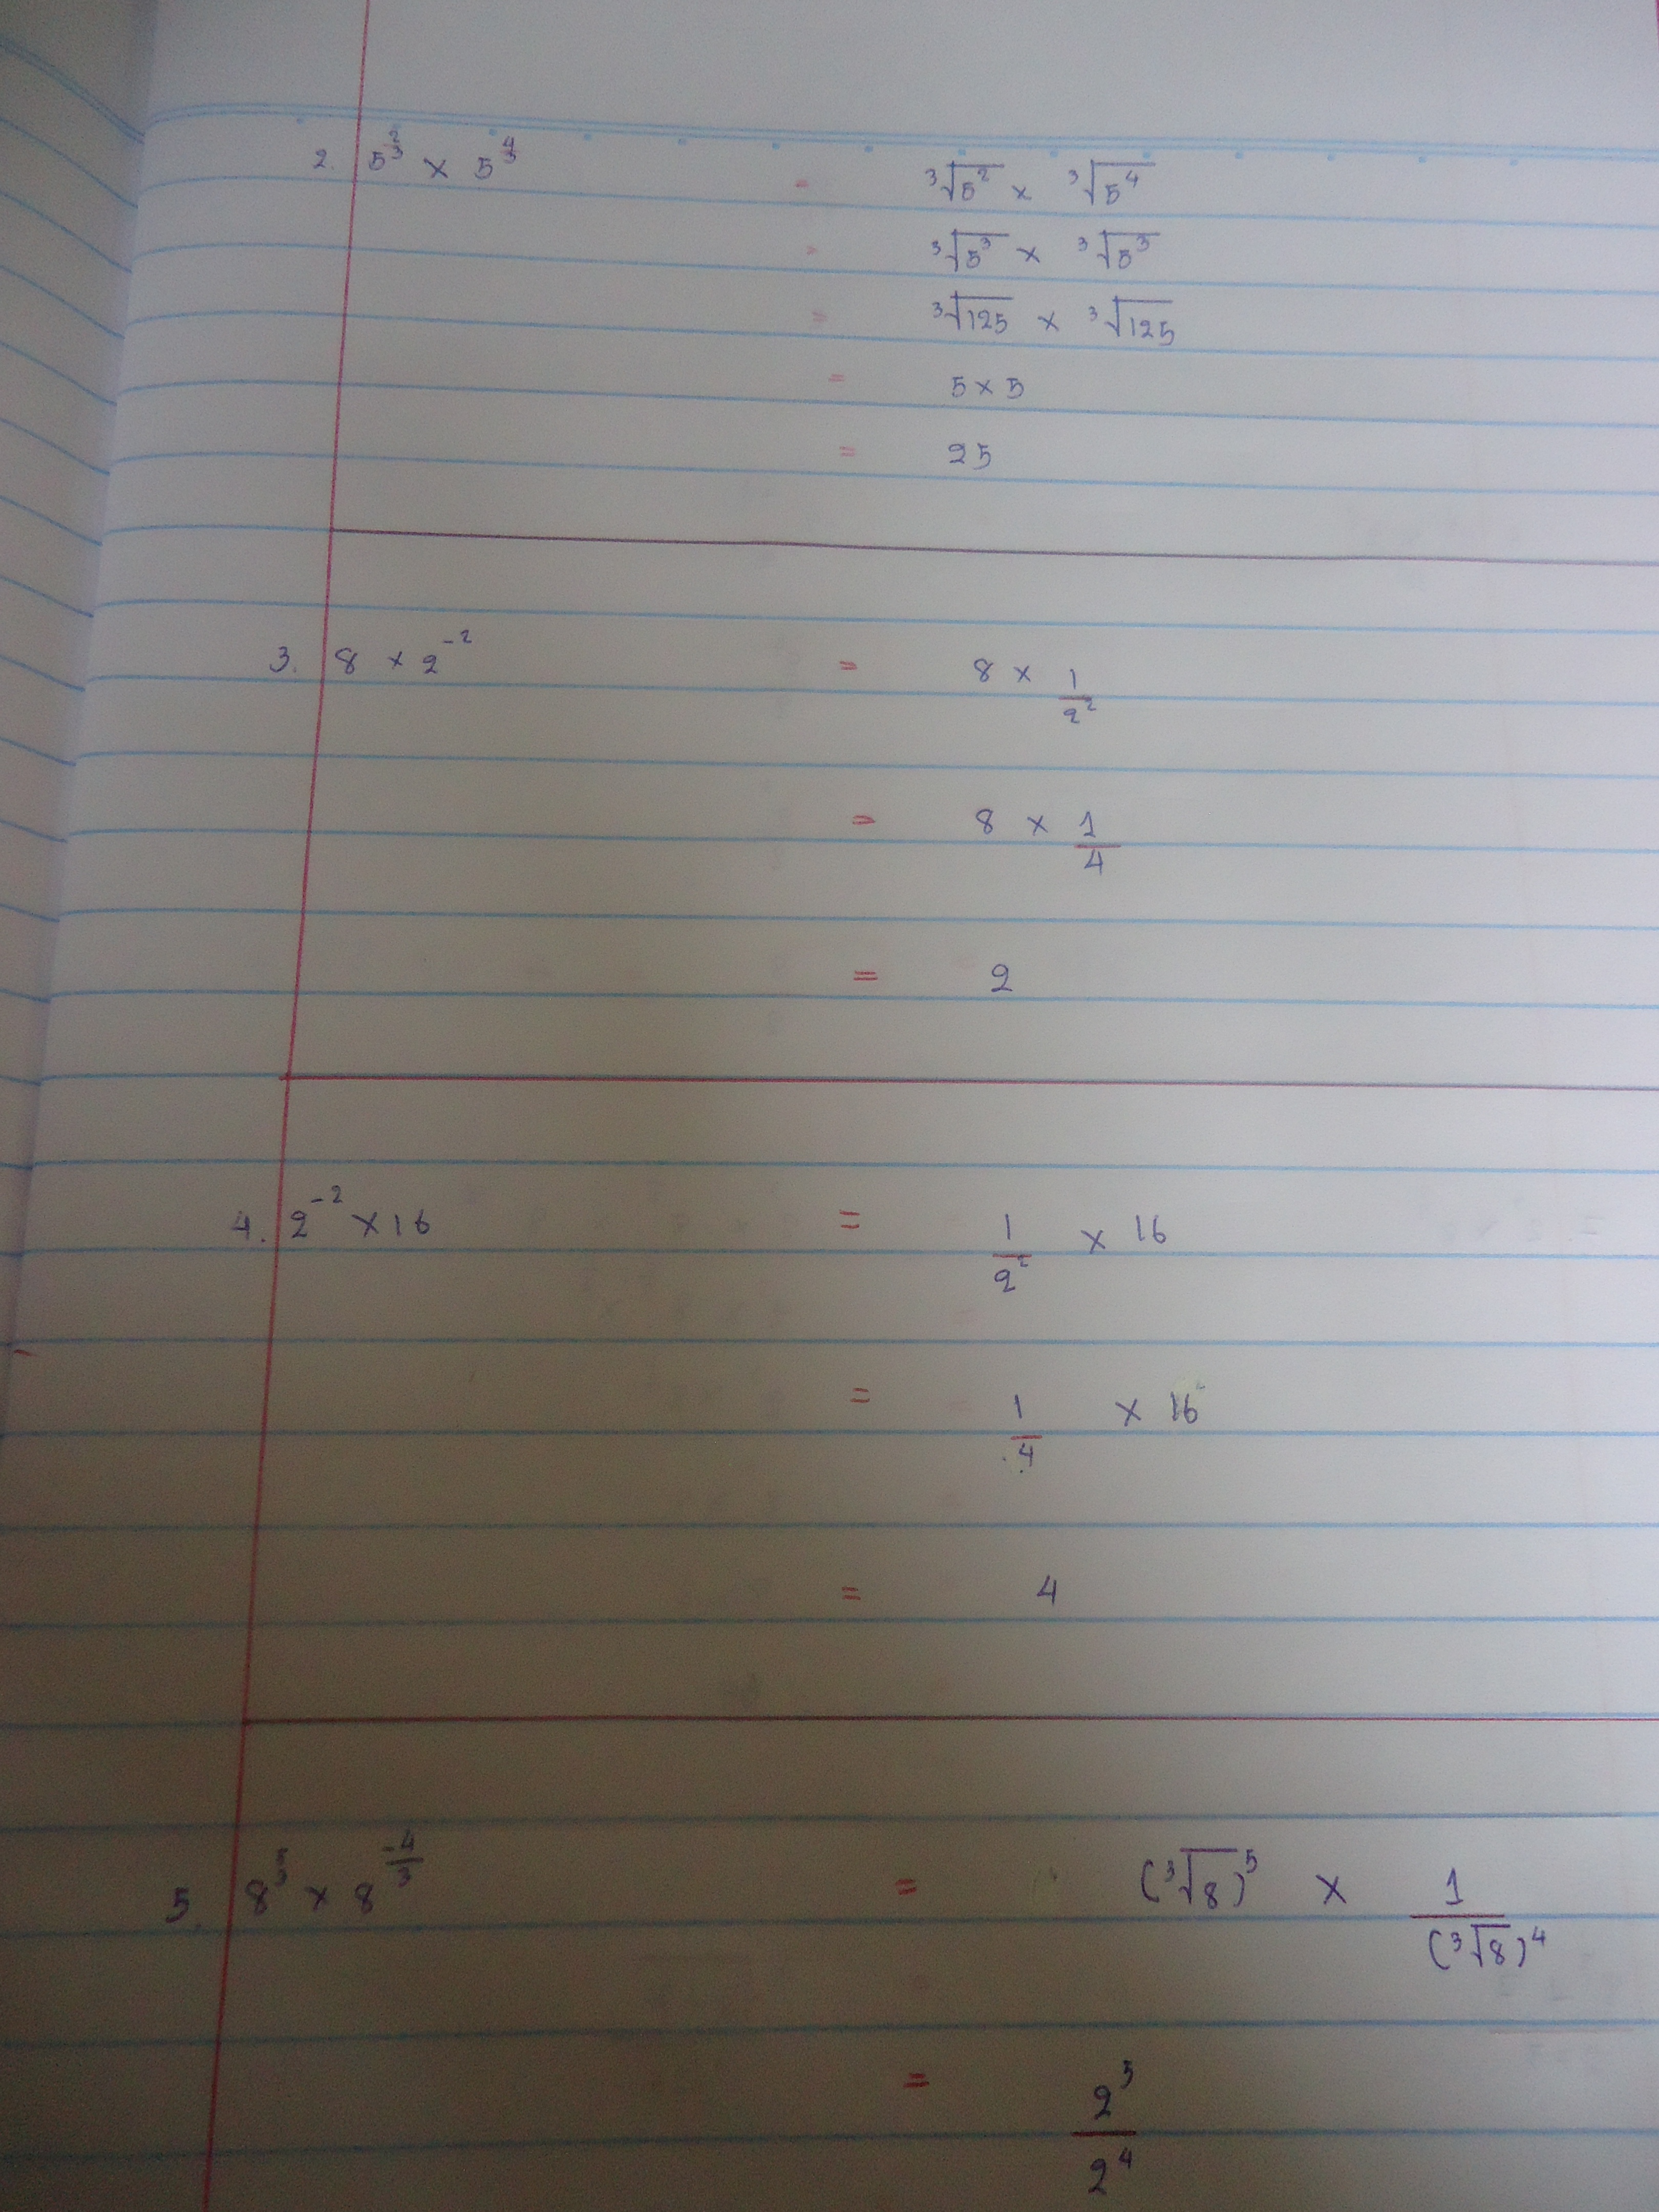 2. 5^(2/3) × 5^(4/3) = ³√5² × ³√5⁴
= ³√5³ × ³√5³
= ³√125 × ³√125
= 5 × 5
= 25
3. 8 × 2⁻² = 8 × 1/2²
= 8 × 1/4
= 2
4. 2⁻² × 16 = 1/2² × 16
= 1/4 × 16
= 4
5. 8^(5/3) × 8^(-4/3) = (³√8)⁵ × 1/(³√8)⁴
= 2⁵/2⁴